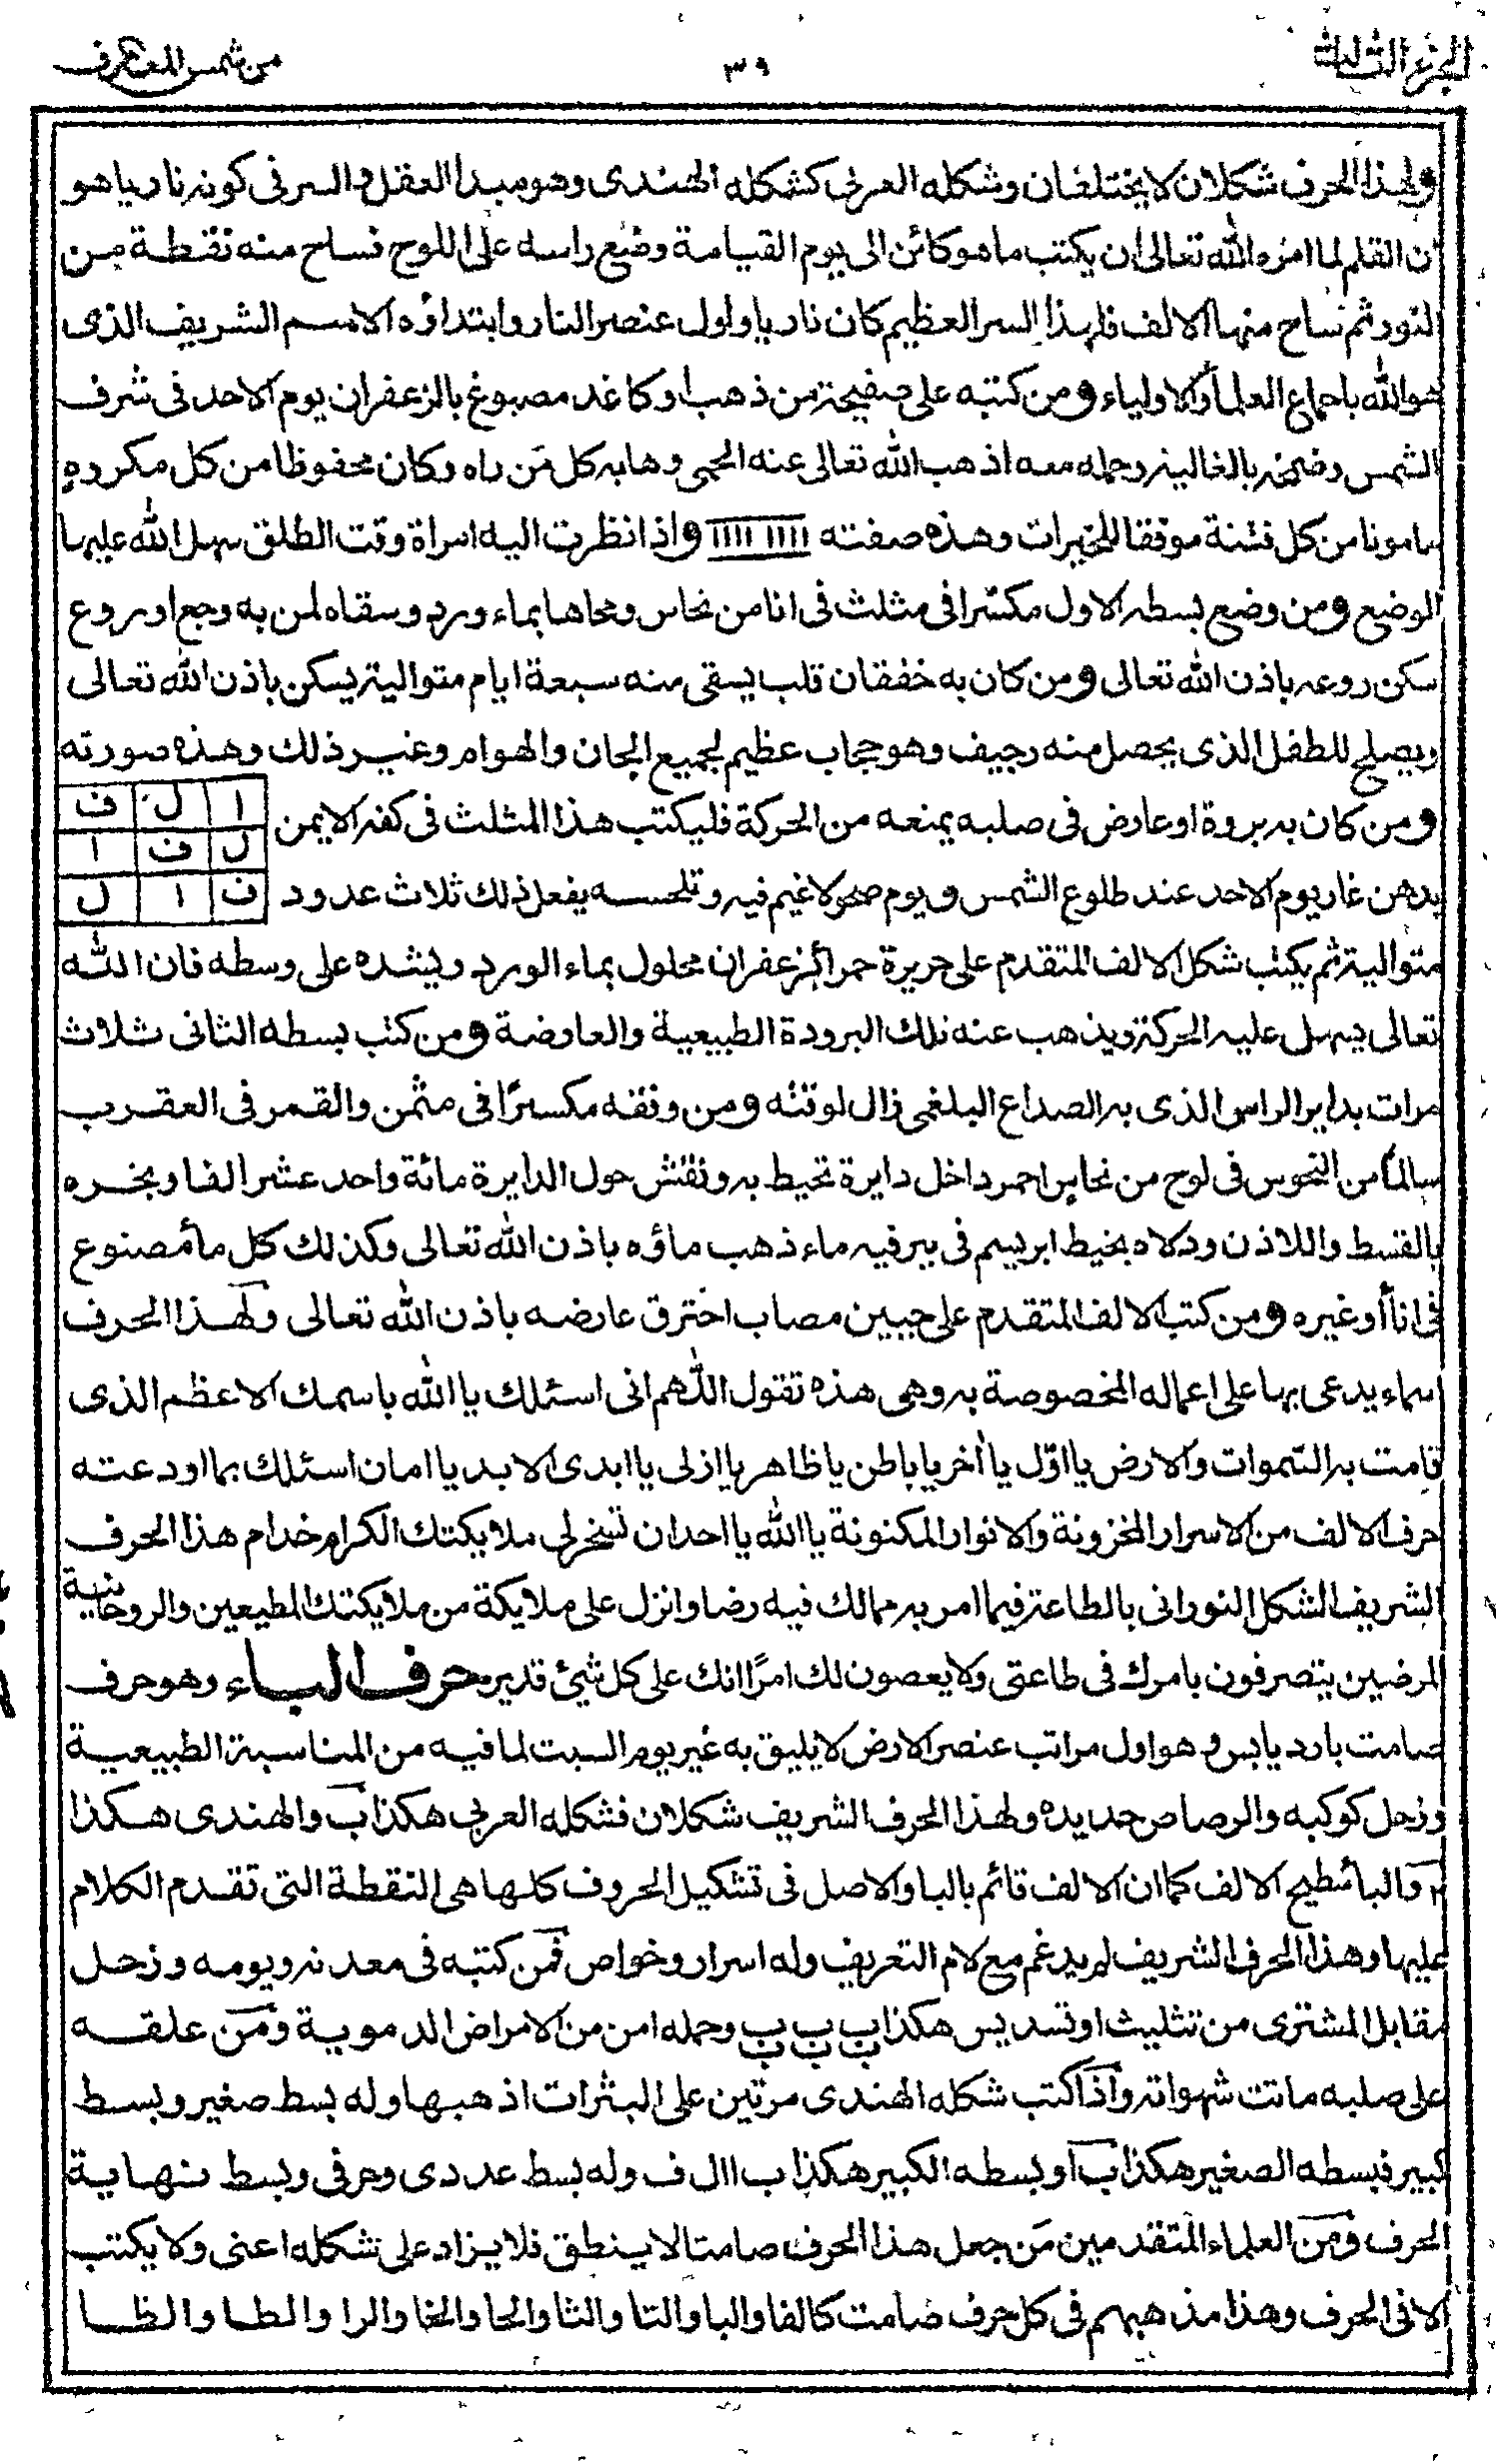 الجزء الثالث
٣٩
من شمس المعارف
ولهذا الحرف شكلان لا يختلفان وشكله العربى كشكله الهندى وهو مبدا العقل والسر فى كونه ناريا هو
ان القلم لما امره الله تعالى ان يكتب ما هو كائن الى يوم القيامة وضع راسه على اللوح فساح منه نقطة من
النور ثم ساح منها الالف فلهذا السر العظيم كان ناريا واول عنصر النار وابتداؤه الاسم الشريف الذى
هو الله باجماع العلماء والاولياء ومن كتبه على صفيحة من ذهب او كاغد مصبوغ بالزعفران يوم الاحد فى شرف
الشمس وضمخه بالغالية وحمله معه اذهب الله تعالى عنه الحمى وهابه كل من راه وكان محفوظا من كل مكروه
مامونا من كل فتنة موفقا للخيرات وهذه صفته ١١١١ ١١١١ واذا نظرت اليه امراة وقت الطلق سهل الله عليها
الوضع ومن وضع بسطه الاول مكسرا فى مثلث فى انا من نحاس ومحاها بماء ورد وسقاه لمن به وجع اوروع
سكن روعه باذن الله تعالى ومن كان به خفقان قلب يسقى منه سبعة ايام متوالية يسكن باذن الله تعالى
ويصلح للطفل الذى يحصل منه رجيف وهو حجاب عظيم لجميع الجان والهوام وغير ذلك وهذه صورته
ومن كان به بروة او عارض فى صلبه يمنعه من الحركة فليكتب هذا المثلث فى كفه الايمن
ا ل ف
ل ف ا
ف ا ل
بدهن غار يوم الاحد عند طلوع الشمس ويوم صحو لا غيم فيه وتلحسه يفعل ذلك ثلاث عدود
متوالية ثم يكتب شكل الالف المتقدم على حريرة حمرا بزعفران محلول بماء الورد ويشده على وسطه فان الله
تعالى يسهل عليه الحركة ويذهب عنه تلك البرودة الطبيعية والعارضة ومن كتب بسطه الثانى ثلاث
مرات بداير الراس الذى به الصداع البلغمى زال لوقته ومن وفقه مكسرًا فى مثمن والقمر فى العقرب
سالما من النحوس فى لوح من نحاس احمر داخل دايرة تحيط به ونقش حول الدايرة مائة واحد عشر الفا وبخره
بالقسط واللاذن ودلاه بخيط ابريسم فى بير فيه ماء ذهب ماؤه باذن الله تعالى وكذلك كل ماء مصنوع
فى اناء او غيره ومن كتب الالف المتقدم على جبين مصاب احترق عارضه باذن الله تعالى ولهذا الحرف
اسماء يدعى بها على اعماله المخصوصة به وهى هذه تقول اللهم انى اسئلك يا الله باسمك الاعظم الذى
قامت به السموات والارض يا اول يا آخر يا باطن يا ظاهر يا ازلى يا ابدى الابد يا امان اسئلك بما اودعته
حرف الالف من الاسرار المخزونة والانوار المكنونة يا الله يا احد ان تسخر لى ملايكتك الكرام خدام هذا الحرف
الشريف الشكل النورانى بالطاعة فيما امر به مما لك فيه رضا وانزل على ملايكة من ملايكتك المطيعين والروحانية
المرضيين يتصرفون بامرك فى طاعتى ولا يعصون لك امرًا انك على كل شيئ قدير حرف الباء وهو حرف
صامت بارد يابس وهو اول مراتب عنصر الارض لا يليق به غير يوم السبت لما فيه من المناسبة الطبيعية
وزحل كوكبه والرصاص حديده ولهذا الحرف الشريف شكلان فشكله العربى هكذا ب والهندى هكذا
٢ والبا سطيح الالف كما ان الالف قائم بالبا والاصل فى تشكيل الحروف كلها هى النقطة التى تقدم الكلام
عليها وهذا الحرف الشريف لم يدغم مع لام التعريف وله اسرار وخواص فمن كتبه فى معدنه ويومه وزحل
مقابل المشترى من تثليث او تسديس هكذا ب ب ب ب ب ب وحمله امن من الامراض الدموية ومن علقه
على صلبه ماتت شهواته واذا كتب شكله الهندى مرتين على البثرات اذهبها وله بسط صغير وبسط
كبير فبسطه الصغير هكذا ب ا وبسطه الكبير هكذا ب ا ال ف وله بسط عددى وحرفى وبسط نهاية
الحرف ومن العلماء المتقدمين من جعل هذا الحرف صامتا لا ينطق فلا يزاد على شكله اعنى ولا يكتب
الا فى الحرف وهذا مذهبهم فى كل حرف صامت كالفا والبا والتا والثا والحا والخا والرا والطا والظا